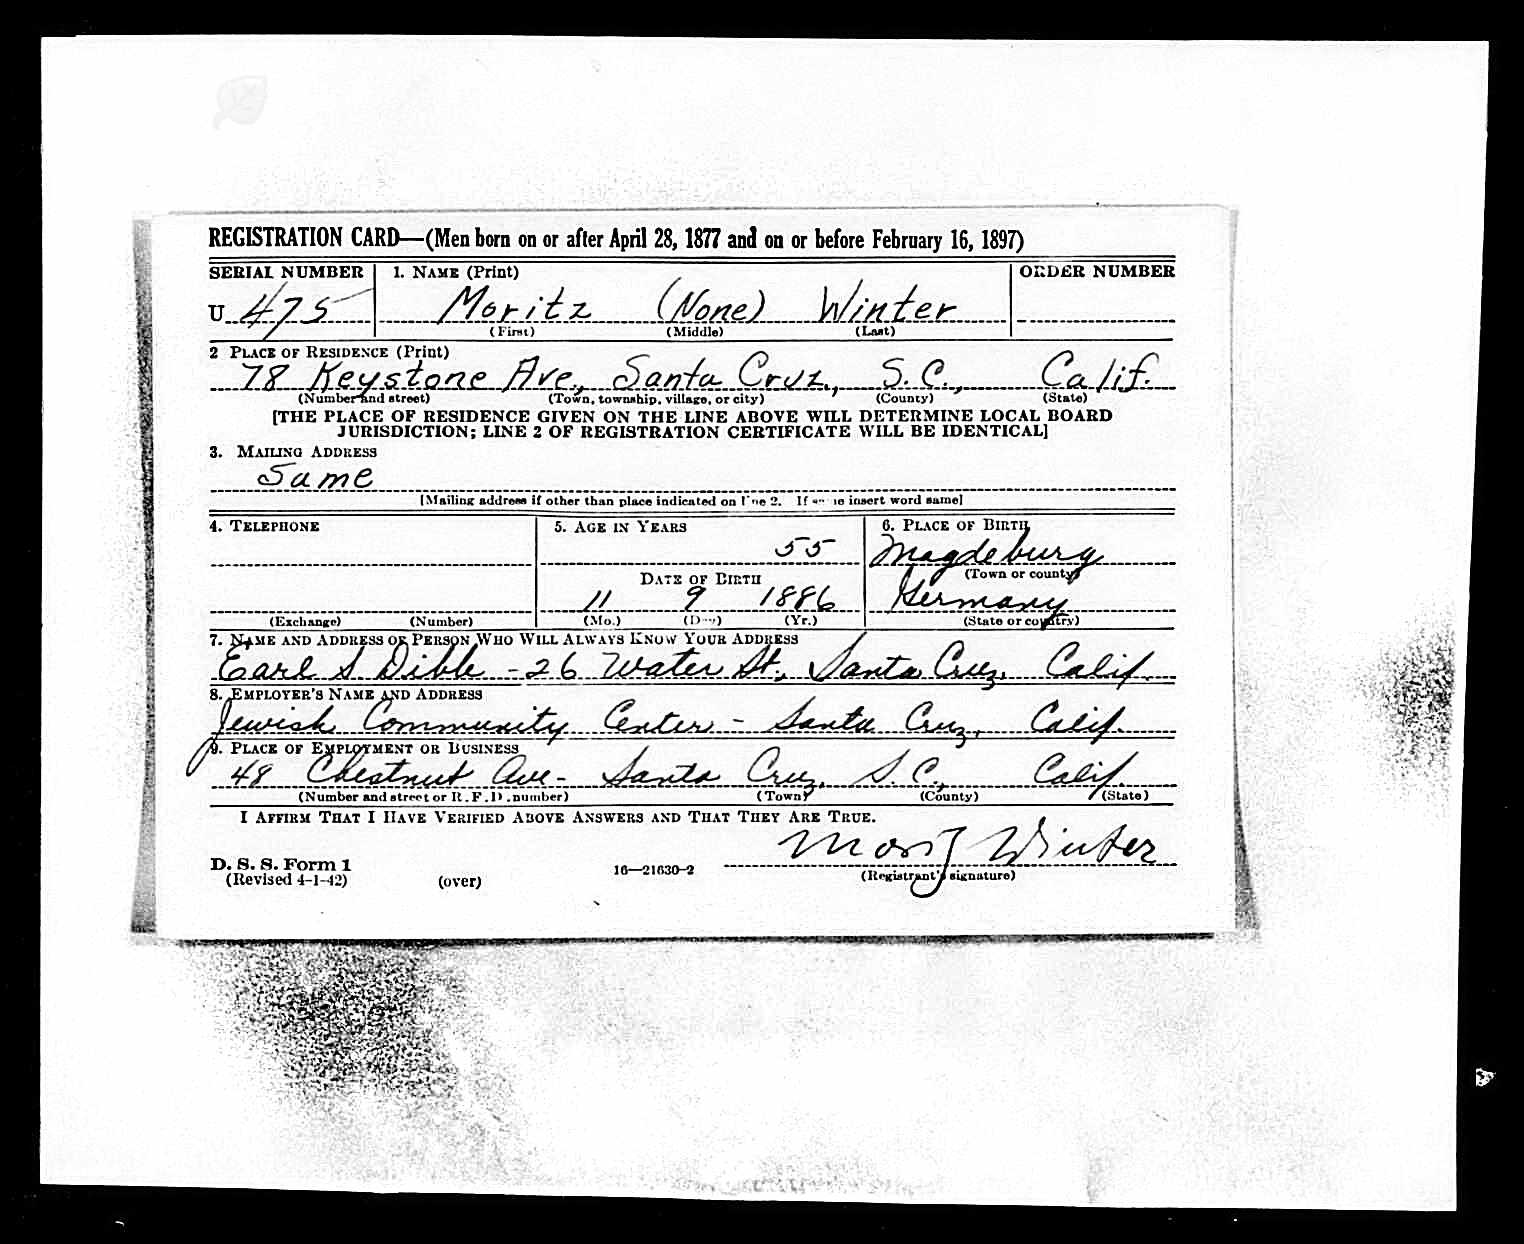 REGISTRATION CARD—(Men born on or after April 28, 1877 and on or before February 16, 1897)
SERIAL NUMBER 1. NAME (Print) ORDER NUMBER
U 475 Moritz (None) Winter
(First) (Middle) (Last)
2 PLACE OF RESIDENCE (Print)
78 Keystone Ave., Santa Cruz, S.C., Calif.
(Number and street) (Town, township, village, or city) (County) (State)
[THE PLACE OF RESIDENCE GIVEN ON THE LINE ABOVE WILL DETERMINE LOCAL BOARD
JURISDICTION; LINE 2 OF REGISTRATION CERTIFICATE WILL BE IDENTICAL]
3. MAILING ADDRESS
Same
[Mailing address if other than place indicated on line 2. If same insert word same]
4. TELEPHONE 5. AGE IN YEARS 6. PLACE OF BIRTH
55 Magdeburg
DATE OF BIRTH (Town or county)
11 9 1886 Germany
(Exchange) (Number) (Mo.) (Day) (Yr.) (State or country)
7. NAME AND ADDRESS OF PERSON WHO WILL ALWAYS KNOW YOUR ADDRESS
Earl S Dible - 26 Water St., Santa Cruz, Calif.
8. EMPLOYER'S NAME AND ADDRESS
Jewish Community Center - Santa Cruz, Calif.
9. PLACE OF EMPLOYMENT OR BUSINESS
48 Chestnut Ave - Santa Cruz, S.C., Calif.
(Number and street or R.F.D. number) (Town) (County) (State)
I AFFIRM THAT I HAVE VERIFIED ABOVE ANSWERS AND THAT THEY ARE TRUE.
Moritz Winter
D. S. S. Form 1
(Revised 4-1-42) (over) 16—21630-2 (Registrant's signature)